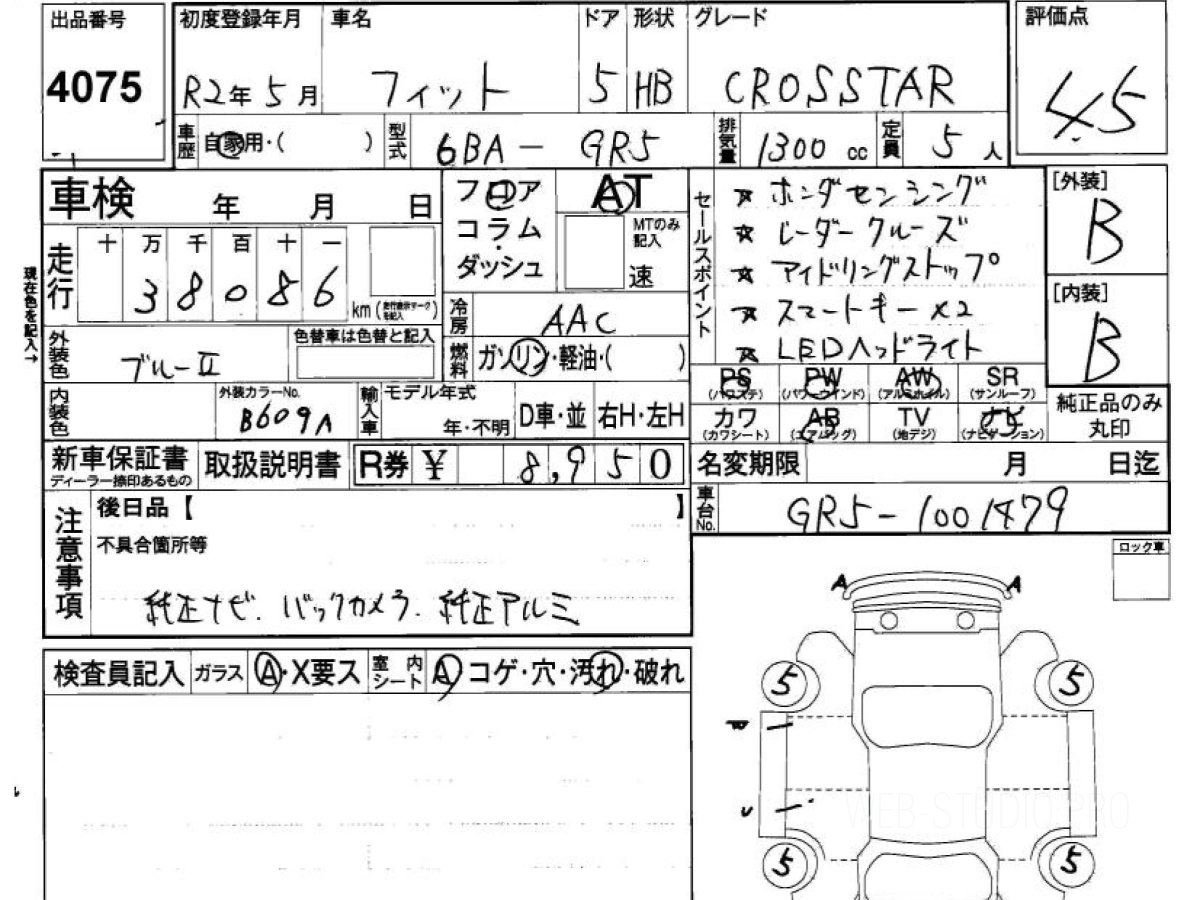 出品番号 初度登録年月 車名 ドア 形状 グレード 評価点
4075 R2年 5月 フィット 5 HB CROSSTAR 4.5
車歴 自家用・( ) 型式 6BA - GR5 排気量 1300 cc 定員 5 人
車検 年 月 日
フロア
コラム・
ダッシュ
AT
MTのみ
記入
速
セールスポイント
☆ ホンダセンシング
☆ レーダークルーズ
☆ アイドリングストップ
☆ スマートキー×2
☆ LEDヘッドライト
[外装]
B
[内装]
B
現在色を記入→
走行 十 万 千 百 十 一
3 8 0 8 6 km (走行表示マークを記入)
冷房 AAC
外装色 ブルーⅡ 色替車は色替と記入
燃料 ガソリン・軽油・( )
PS PW AW SR
(パワステ) (パワーウインド) (アルミホイル) (サンルーフ)
カワ AB TV ナビ
(カワシート) (エアバッグ) (地デジ) (ナビゲーション)
純正品のみ
丸印
内装色 外装カラーNo. B609M 輸入車 モデル年式 年・不明 D車・並 右H・左H
新車保証書 取扱説明書 R券 ¥ 8,950
ディーラー捺印あるもの
名変期限 月 日迄
車台No. GR5-1001479
注意事項
後日品【 】
不具合箇所等
純正ナビ. バックカメラ. 純正アルミ
ロック車
A A
検査員記入 ガラス A・X要ス 室内シート A コゲ・穴・汚れ・破れ
5 5
W
U
5 5
WEB-STUDIO.PRO